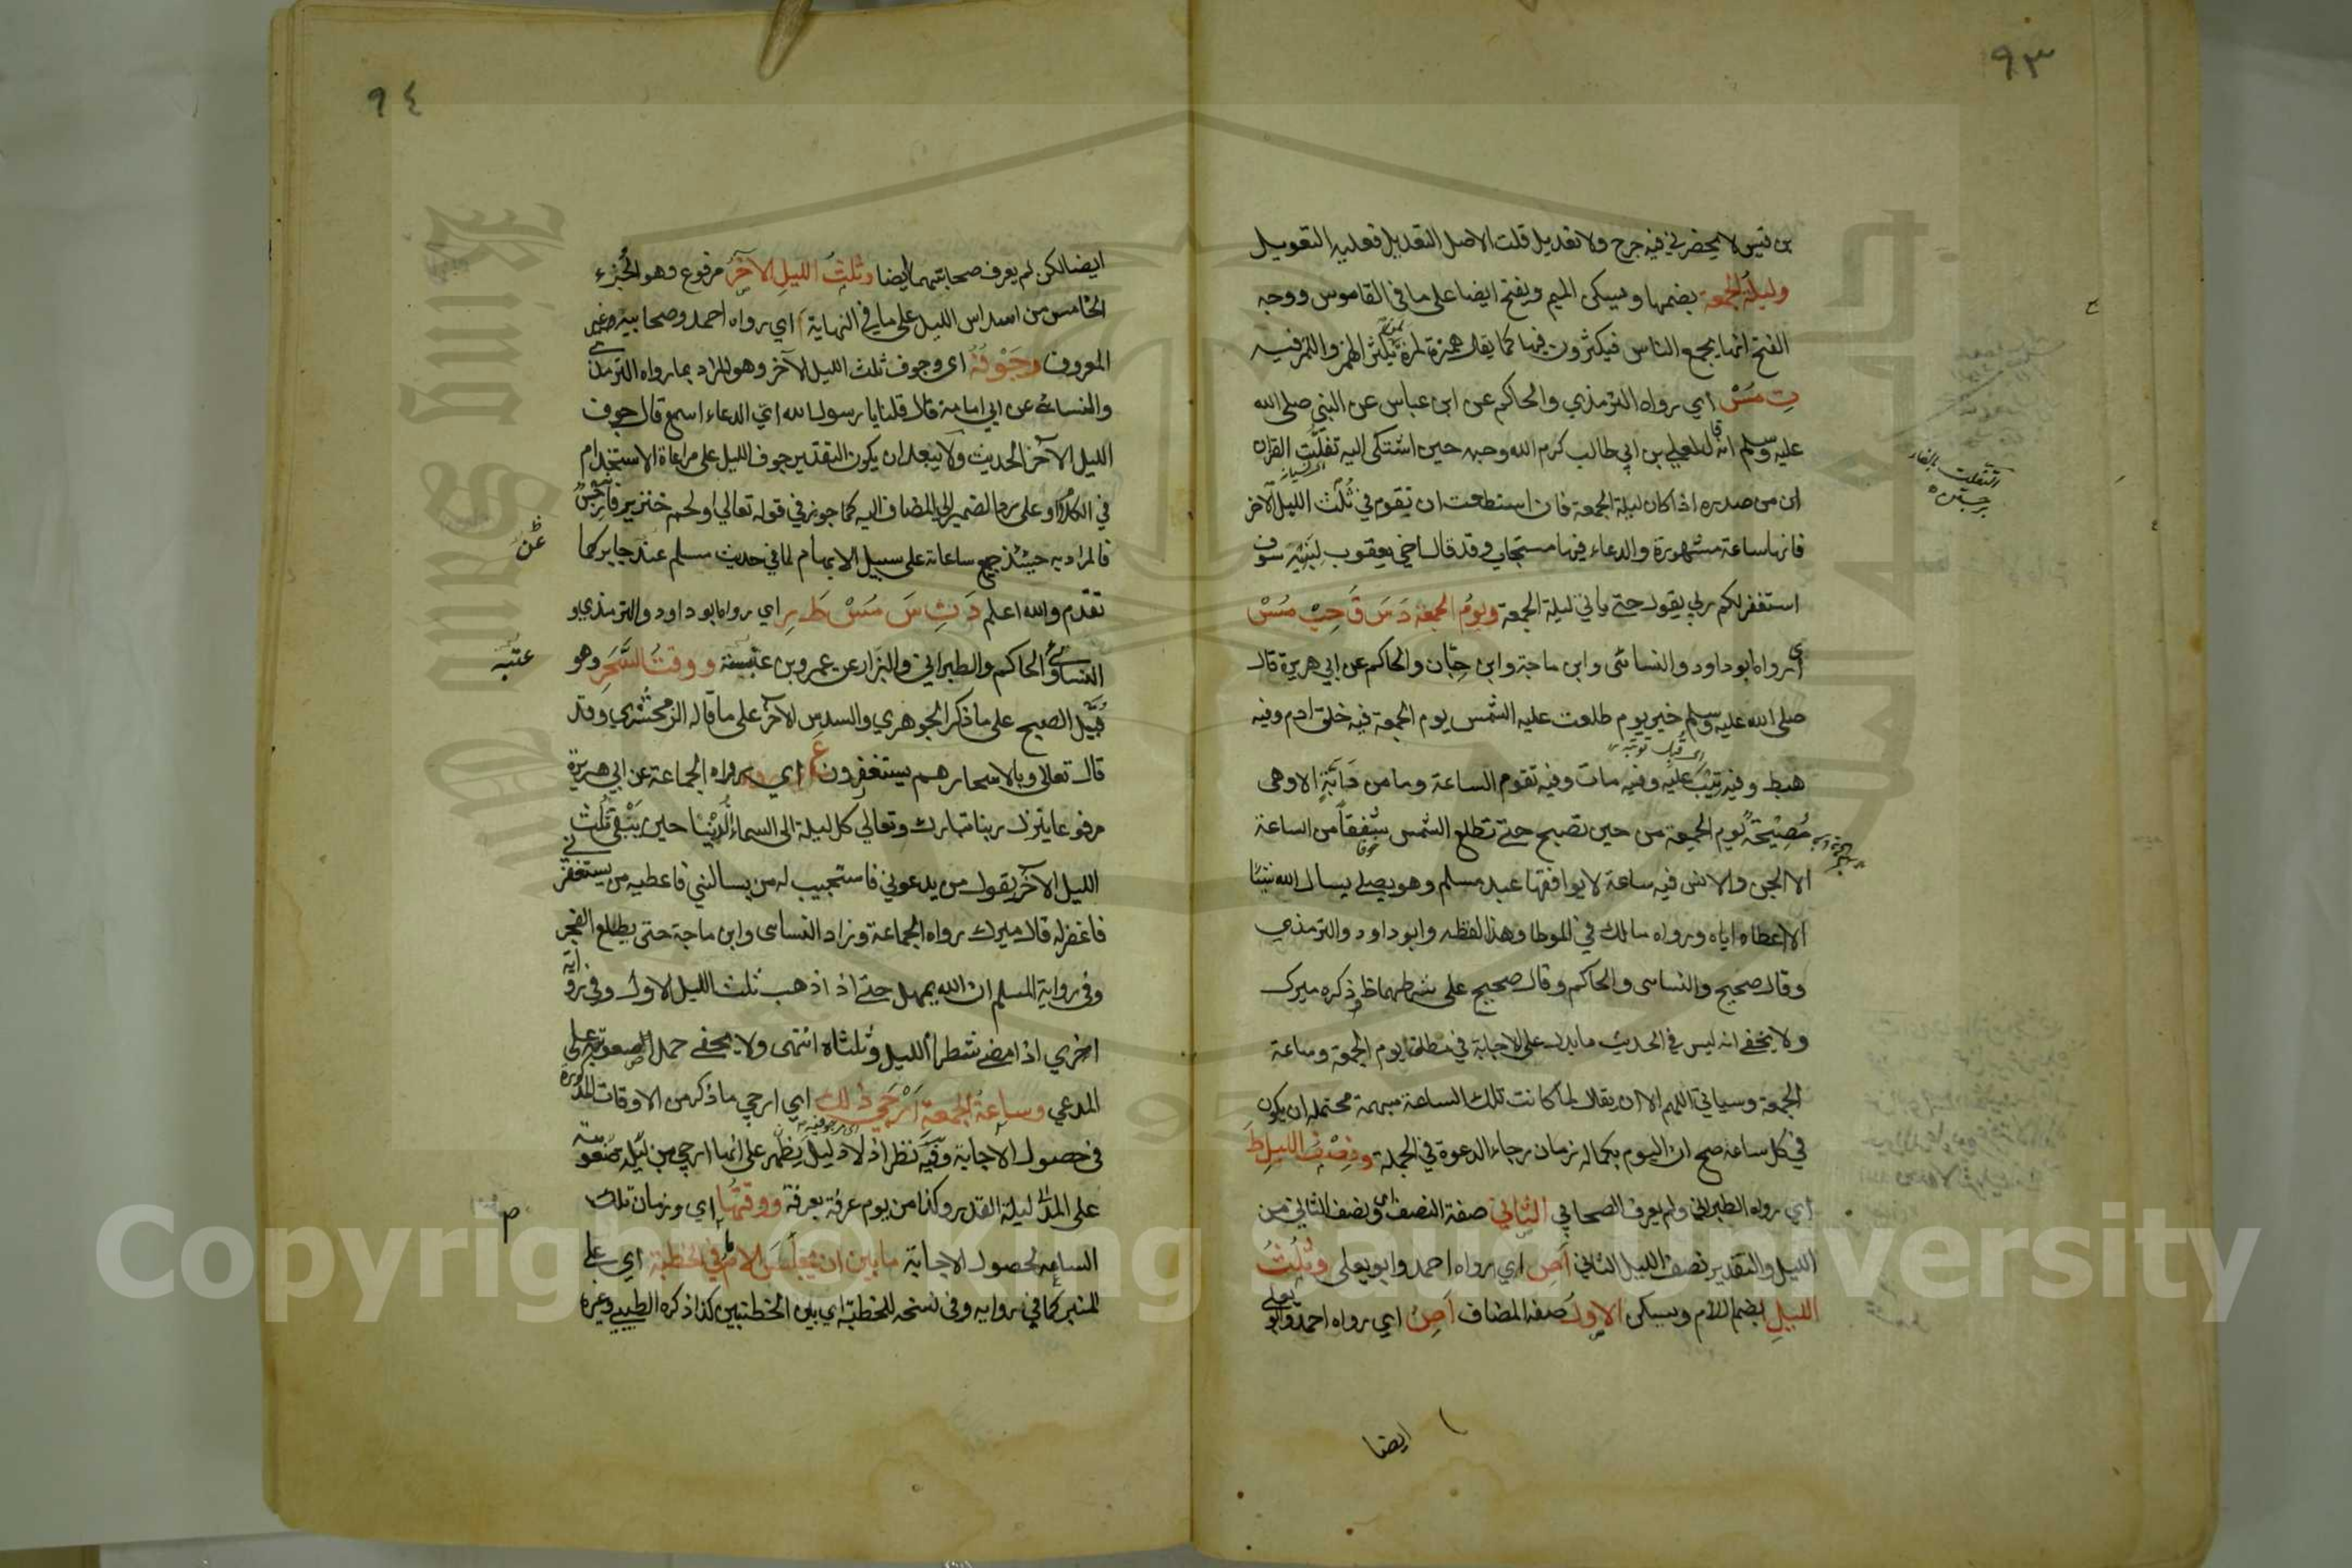 ٩٣
بن قيس لا يحضرني فيه جرح ولا تعديل قلت الاصل التعديل فعليه التعويل
وليلة الجمعة بضمها ويسكن الميم ويفتح ايضا على ما في القاموس ووجه
الفتح انها يجمع الناس فيكثرون فيها كما يقال همزة لمزة يكثر الهمز واللمز فيه
ت مس اي رواه الترمذي والحاكم عن ابن عباس عن النبي صلى الله
عليه وسلم انه قال لعلي بن ابي طالب كرم الله وجهه حين اشتكى اليه تفلت القران
اي من صدره اذا كان ليلة الجمعة فان استطعت ان تقوم في ثلث الليل الآخر
فانها ساعة مشهورة والدعاء فيها مستجاب وقد قال اخي يعقوب لبنيه سوف
استغفر لكم ربي يقول حتى ياتي ليلة الجمعة ويوم الجمعة د س ق حب مس
اي رواه ابو داود والنسائى وابن ماجة وابن حبان والحاكم عن ابي هريرة قال
صلى الله عليه وسلم خير يوم طلعت عليه الشمس يوم الجمعة فيه خلق ادم وفيه
اي قبل توبته
هبط وفيه تيب عليه وفيه مات وفيه تقوم الساعة وما من دابة الا وهى
مصيخة يوم الجمعة من حين تصبح حتى تطلع الشمس شفقا من الساعة
الا الجن والانس فيه ساعة لا يوافقها عبد مسلم وهو يصلي يسال الله شيئا
الا اعطاه اياه ورواه مالك في الموطا وهذا لفظه وابو داود والترمذي
وقال صحيح والنساى والحاكم وقال صحيح على شرطهما ذكره ميرك
ولا يخفى انه ليس في الحديث ما يدل على الاجابة في مطلق يوم الجمعة وساعة
الجمعة وسياتي اللهم الا ان يقال لما كانت تلك الساعة مبهمة محتملة ان يكون
في كل ساعة صح ان اليوم بكماله زمان رجاء الدعوة في الجملة ونصف الليل ط
اي رواه الطبراني ولم يعرف الصحابي الثاني صفة النصف اي ونصف الثاني من
الليل والتقدير نصف الليل الثاني اص اي رواه احمد وابو يعلى وثلث
الليل بضم اللام ويسكن الاول صفة المضاف اص اي رواه احمد وابو يعلى
ايضا
٩٤
ايضا لكن لم يعرف صحابتهما ايضا وثلث الليل الآخر مرفوع وهو الجزء
الخامس من اسداس الليل على ما في النهاية ا اي رواه احمد وصحابيه غير
المعروف وجوفه اى وجوف ثلث الليل الآخر وهو المراد بما رواه الترمذي
والنسائي عن ابي امامة قال قلنا يا رسول الله اي الدعاء اسمع قال جوف
الليل الآخر الحديث ولا يبعد ان يكون التقدير جوف الليل على مراعاة الاستخدام
في الكلام او على رد الضمير الى المضاف اليه كما جوز في قوله تعالى او لحم خنزير فانه رجس
فالمراد به حينئذ جميع ساعاته على سبيل الابهام لما في حديث مسلم عند جابر كما
عن
تقدم والله اعلم د ت س مس ط ر اي رواه ابو داود والترمذي و
النسائي والحاكم والطبراني والبزار عن عمرو بن عنبسة ووقت السحر وهو
عتبه
قبيل الصبح على ما ذكر الجوهري والسدس الآخر على ما قاله الزمخشري وقد
قال تعالى وبالاسحار هم يستغفرون ع اي رواه الجماعة عن ابي هريرة
مرفوعا ينزل ربنا تبارك وتعالى كل ليلة الى السماء الدنيا حين يبقى ثلث
الليل الآخر يقول من يدعوني فاستجيب له من يسالني فاعطيه من يستغفرني
فاغفر له قال ميرك رواه الجماعة وزاد النساى وابن ماجة حتى يطلع الفجر
وفي رواية لمسلم ان الله يمهل حتى اذا ذهب ثلث الليل الاول وفي رواية
اخري اذا مضى شطر الليل وثلثاه انتهى ولا يخفى حمل على
المدعي وساعة الجمعة ارجى ذلك اي ارجي ما ذكر من الاوقات المذكورة
في حصول الاجابة وفيه نظر اذ لا دليل يظهر على انها ارجى من ليلة
على ليلة القدر وكذا من يوم عرفة بعرفة ووقتها اي وزمان تلك
م
الساعة لحصول الاجابة ما بين ان يجلس الامام في الخطبة اي على
المنبر كما في رواية وفي نسخه للخطبة اي بين الخطبتين كذا ذكره الطيبي وغيره
Copyright © King Saud University
King Saud University
1957